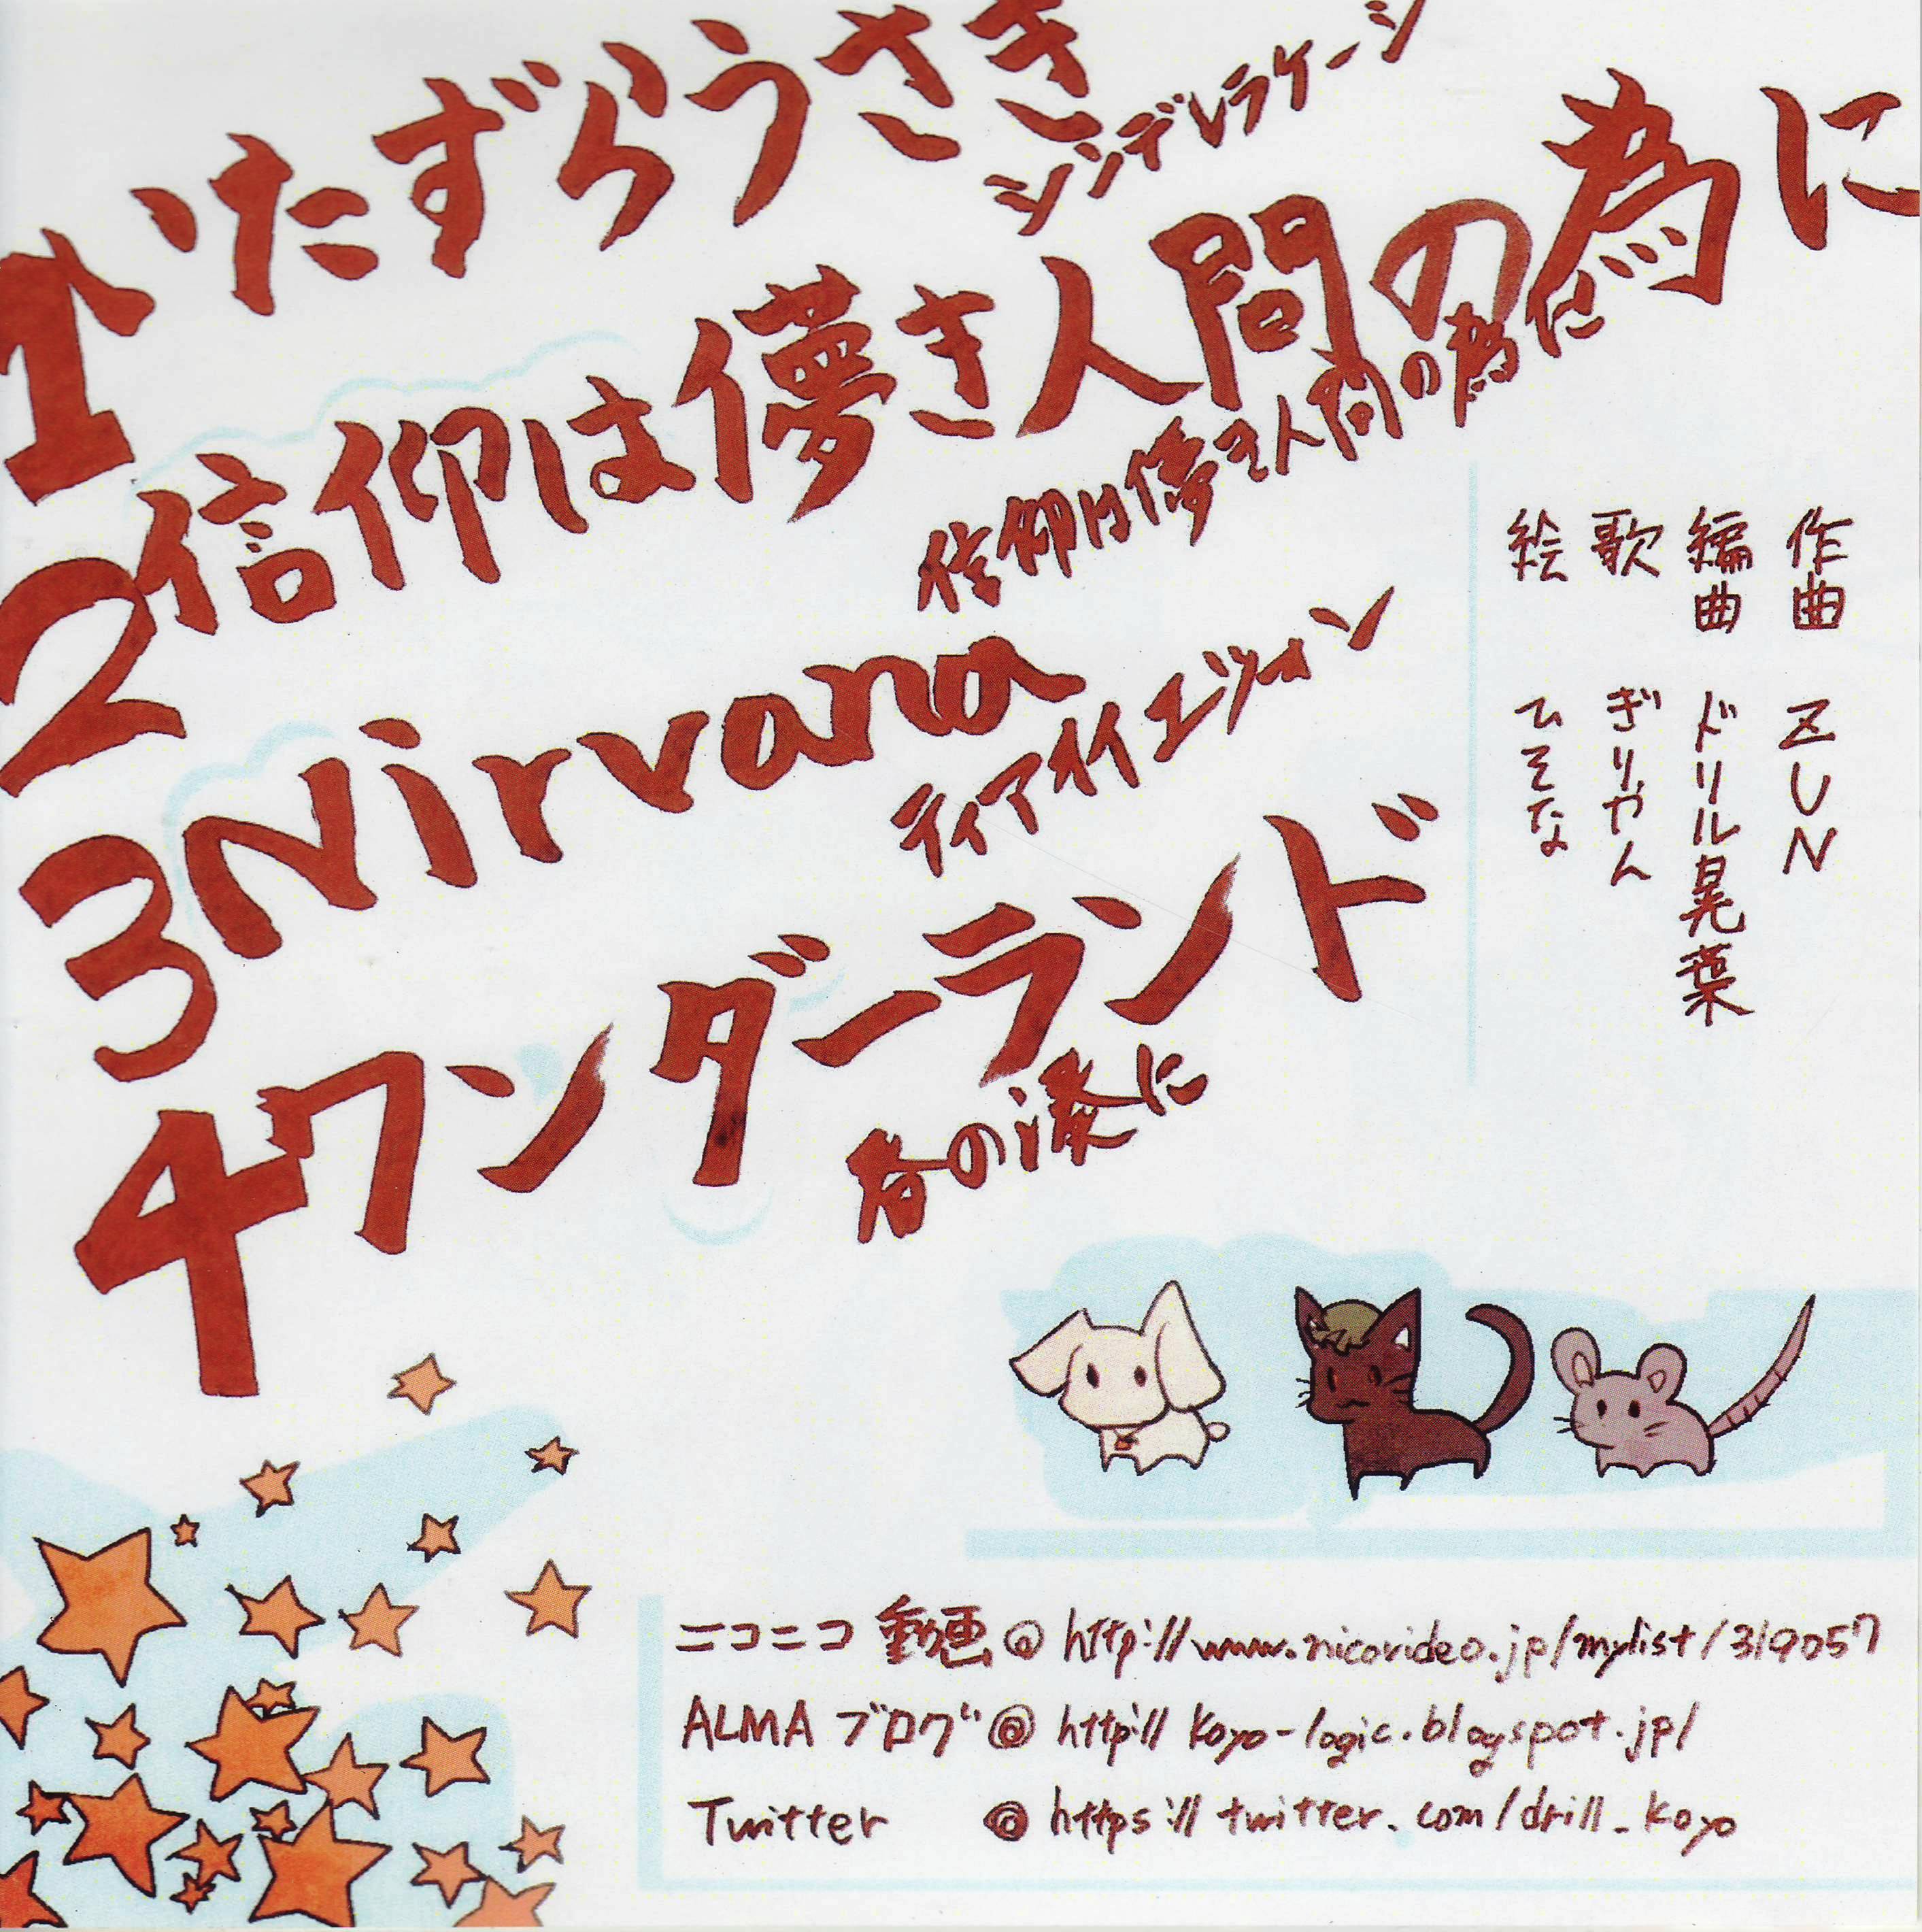 1 いたずらうさぎ
シンデレラケージ
2 信仰は儚き人間の為に
信仰は儚き人間の為に
3 Nirvana
ティアオイエツォン
4 ワンダーランド
春の湊に
作曲 ZUN
編曲 ドリル晃葉
歌 ぎりやん
絵 ひそな
ニコニコ動画@ http://www.nicovideo.jp/mylist/319057
ALMA ブログ@ http://koyo-logic.blogspot.jp/
Twitter @ https://twitter.com/drill_koyo